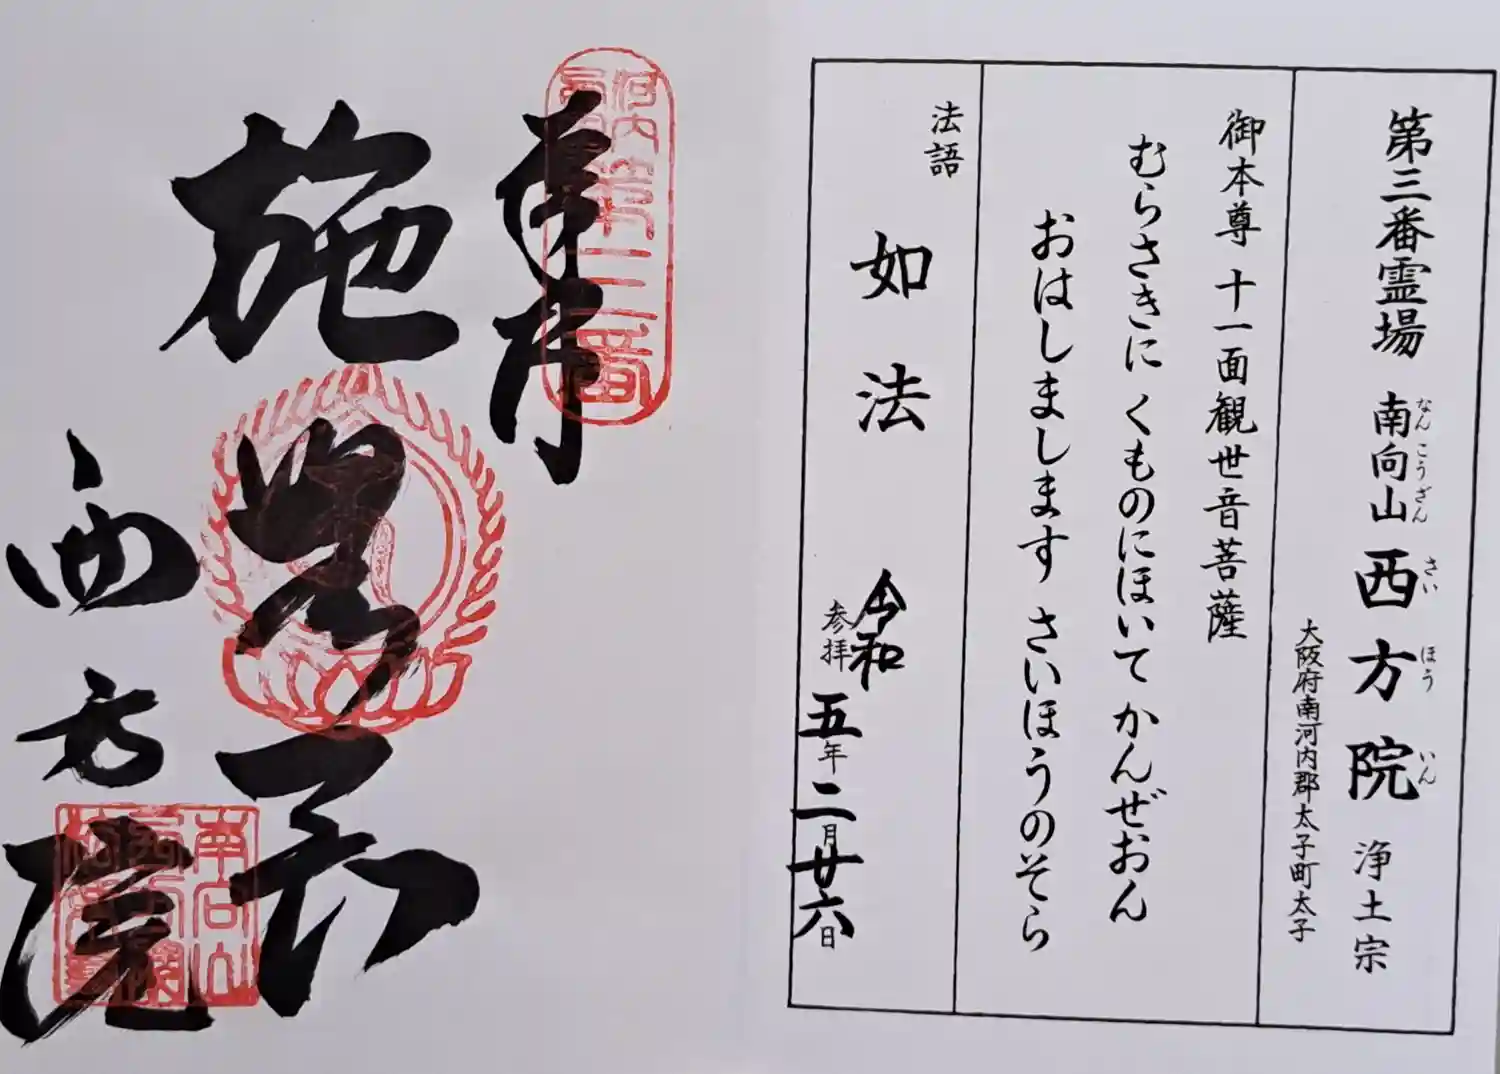 第三番霊場 南向山 西方院 浄土宗
なんこうざん さいほういん
大阪府南河内郡太子町太子
御本尊 十一面観世音菩薩
むらさきに くものにほいて かんぜおん
おはしまします さいほうのそら
法語
如法
令和
参拝 五年二月廿六日
奉拝
河内
第三番
施無畏
西方院
南向山